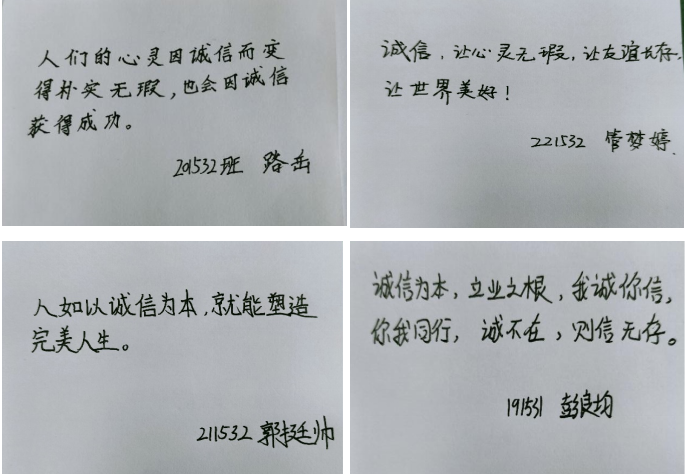 人们的心灵因诚信而变
得朴实无瑕，也会因诚信
获得成功。
201532班 路岳
诚信，让心灵无瑕，让友谊长存，
让世界美好！
221532 管梦婷
人如以诚信为本，就能塑造
完美人生。
211532 郭廷帅
诚信为本，立业之根，我诚你信，
你我同行， 诚不在，则信无存。
191531 彭良均